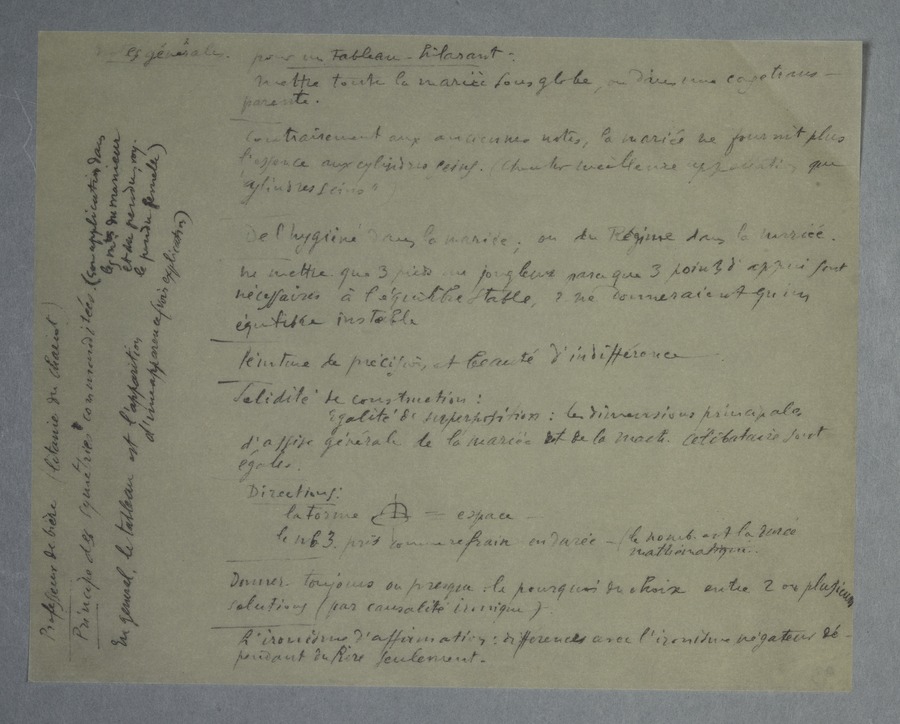 notes générales. pour un tableau - hilarant -
mettre toute la mariée sous globe, ou dans une cage trans-
parente.
Contrairement aux anciennes notes, la mariée ne fournit plus
l'essence aux cylindres seins. (chercher meilleure que
cylindres seins")
De l'hygiène dans la mariée; ou du Régime dans la mariée.
ne mettre que 3 pieds au jongleur parce que 3 points d'appui sont
nécessaires à l'équilibre stable, 2 ne donneraient qu'un
équilibre instable
Peinture de précision, et beauté d'indifférence
Solidité de construction:
égalité de superposition: les dimensions principales
d'assise générale de la mariée et de la mach. célibataire sont
égales.
Directions:
la forme = espace -
le nb 3. pris comme refrain en durée - (le nomb. est la durée
mathématique..
Donner toujours ou presque le pourquoi du choix entre 2 ou plusieurs
solutions (par causalité ironique).
L'ironisme d'affirmation: différences avec l'ironisme négateur dé-
pendant du Rire seulement.
Professeur de bière (litanie du chariot)
Principe des symétries commanditées (son application dans
les du manieur
et du pendu, ou
le pendu femelle)
En général, le tableau est l'apparition
d'une apparence (voir explication)